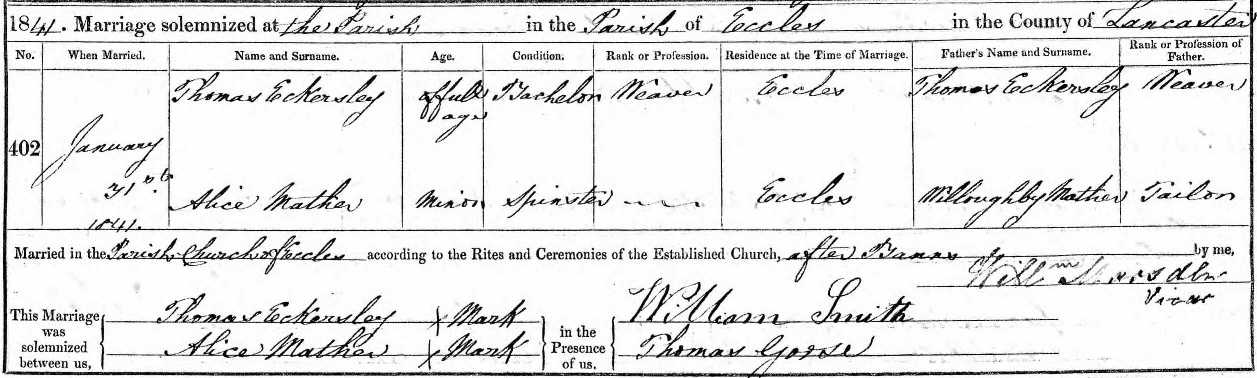 1841. Marriage solemnized at the Parish in the Parish of Eccles in the County of Lancaster
No. When Married. Name and Surname. Age. Condition. Rank or Profession. Residence at the Time of Marriage. Father's Name and Surname. Rank or Profession of Father.
Thomas Eckersley of full age Bachelor Weaver Eccles Thomas Eckersley Weaver
402 January 31st 1841.
Alice Mather Minor Spinster Eccles Willoughby Mather Tailor
Married in the Parish Church of Eccles according to the Rites and Ceremonies of the Established Church, after Banns by me,
Willm Marsden
Vicar
This Marriage was solemnized between us, Thomas Eckersley X Mark in the Presence of us, William Smith
Alice Mather X Mark Thomas Gorse